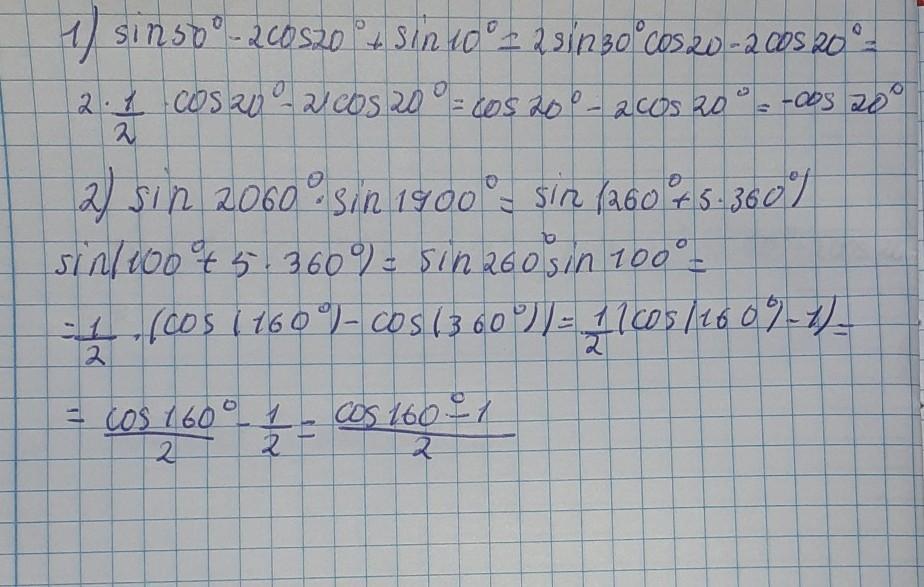 1) sin50° - 2cos20° + sin10° = 2sin30°cos20 - 2cos20° =
2 · 1/2 · cos20° - 2cos20° = cos20° - 2cos20° = -cos20°
2) sin2060° · sin1900° = sin(260° + 5·360°)
sin(100° + 5·360°) = sin260°sin100° =
= 1/2 · (cos(160°) - cos(360°)) = 1/2 (cos(160°) - 1) =
= cos160°/2 - 1/2 = cos160° - 1/2